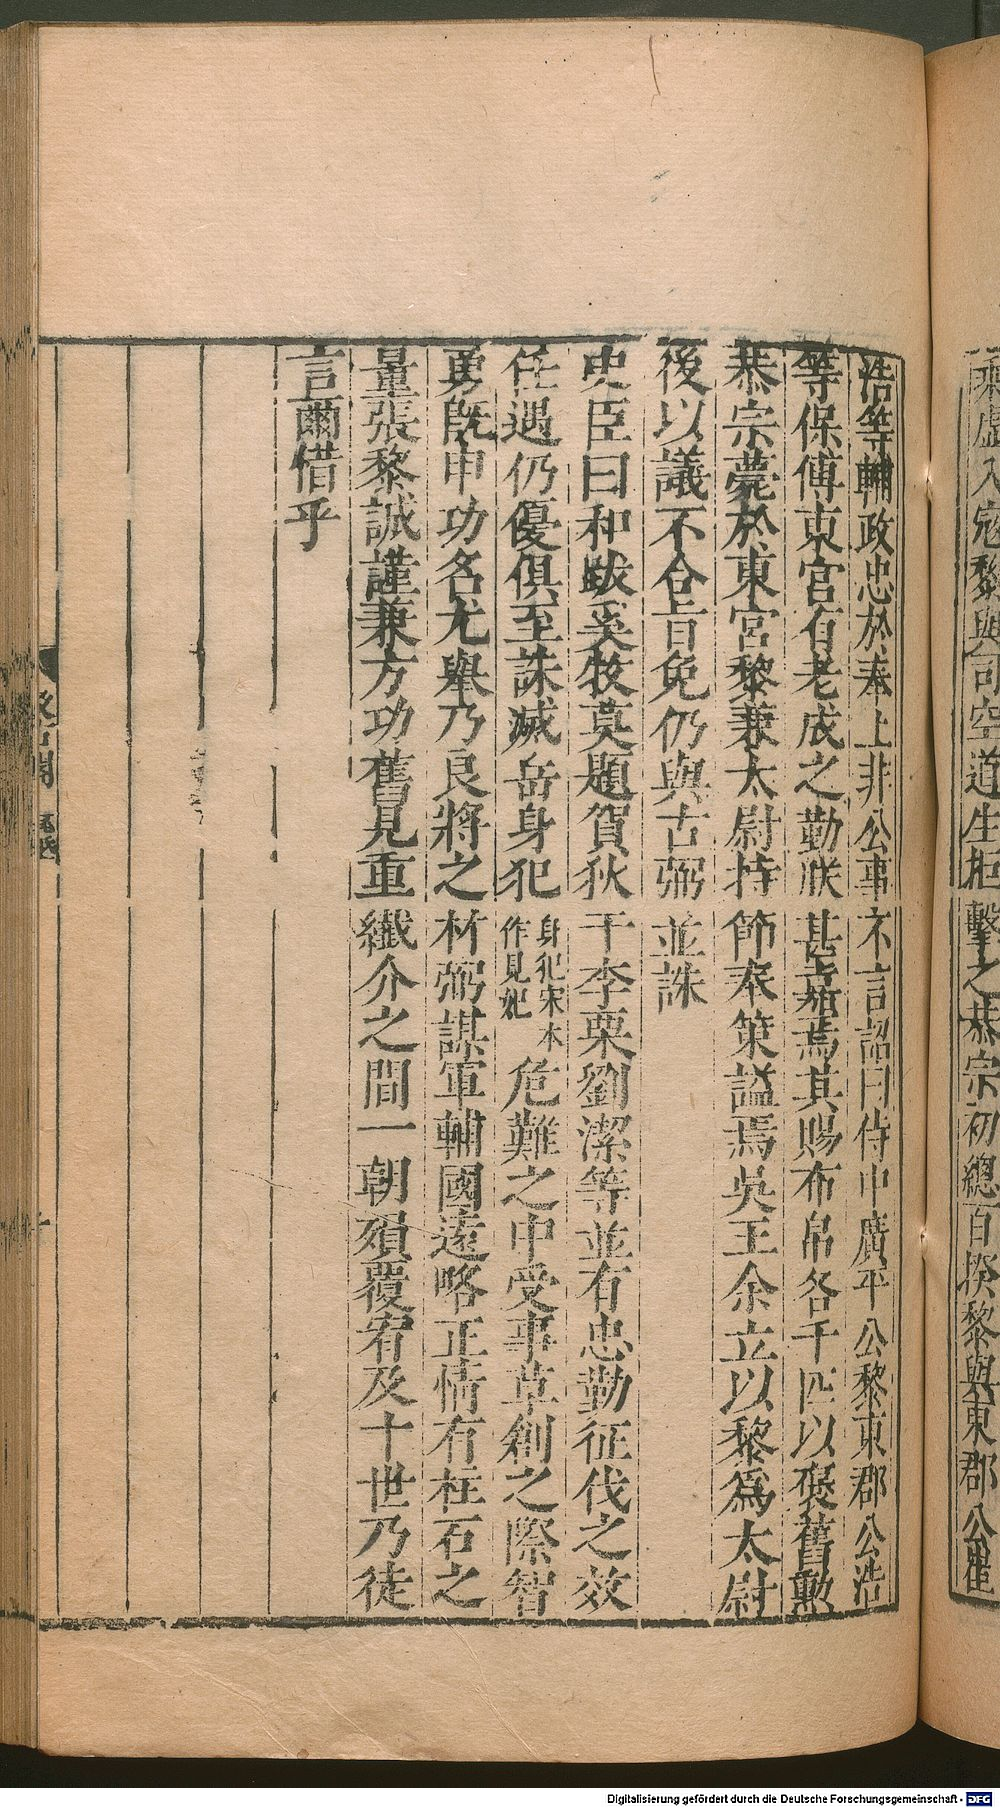 乘虛入寇黎與司空道生拒擊之恭宗初總百揆黎與東郡公崔
浩等輔政忠於奉上非公事不言詔曰侍中廣平公黎東郡公浩
等保傅東宮有老成之勤朕甚嘉焉其賜布帛各千匹以褒舊勳
恭宗薨於東宮黎兼太尉持節奉策謚焉吳王余立以黎爲太尉
後以議不合旨免仍與古弼並誅
史臣曰和跋奚牧莫題賀狄干李栗劉潔等並有忠勤征伐之效
任遇仍優俱至誅滅岳身犯
身犯宋本
作見妃
危難之中受事草創之際智
勇旣申功名尤舉乃良將之材弼謀軍輔國遠略正情有柱石之
量張黎誠謹兼方功舊見重纖介之間一朝殞覆宥及十世乃徒
言爾惜乎
汲古閣
Digitalisierung gefördert durch die Deutsche Forschungsgemeinschaft - DFG